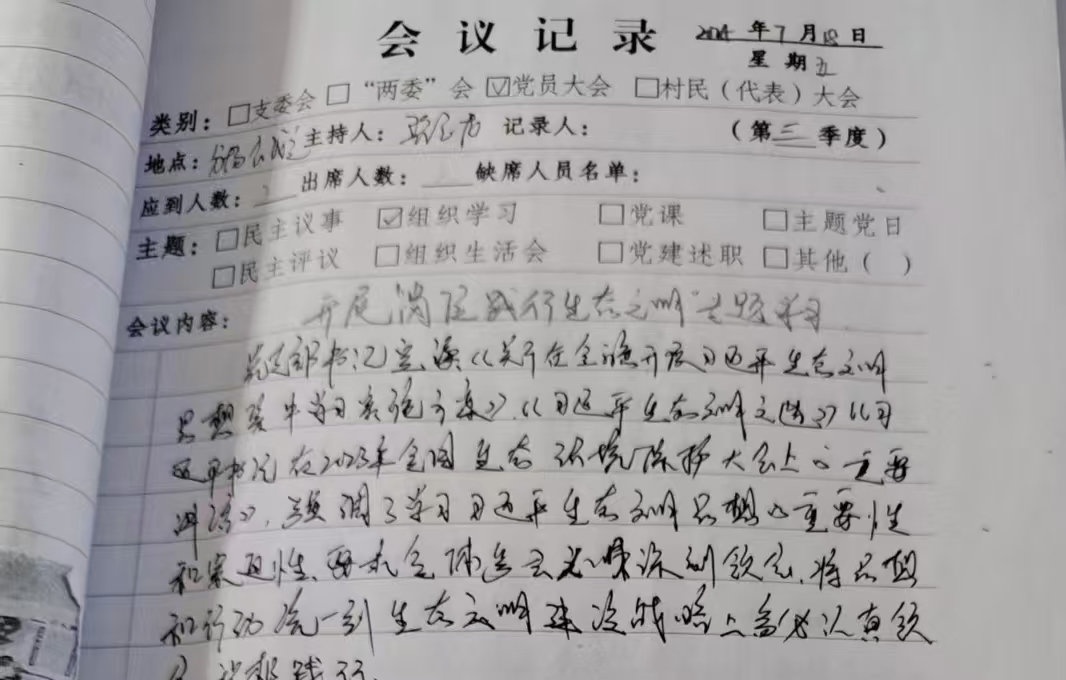 会议记录 年7月18日
星期五
类别：□支委会 □“两委”会 ☑党员大会 □村民（代表）大会
地点： 主持人： 记录人： （第三季度）
应到人数： 出席人数： 缺席人员名单：
主题：□民主议事 ☑组织学习 □党课 □主题党日
□民主评议 □组织生活会 □党建述职 □其他（ ）
会议内容： 开展 践行生态文明"专题学习
党支部书记宣读《关于在全 开展习近平生态文明
思想集中学习 方案》、《习近平生态文明文选》《习
近平 在2023年全国生态环境保护大会上的重要
讲话》，强调了学习习近平生态文明思想的重要性
和紧迫性，要求全体党员必须深刻领会，将思想
和行动统一到生态文明建设战略上 认真领
会 践行.